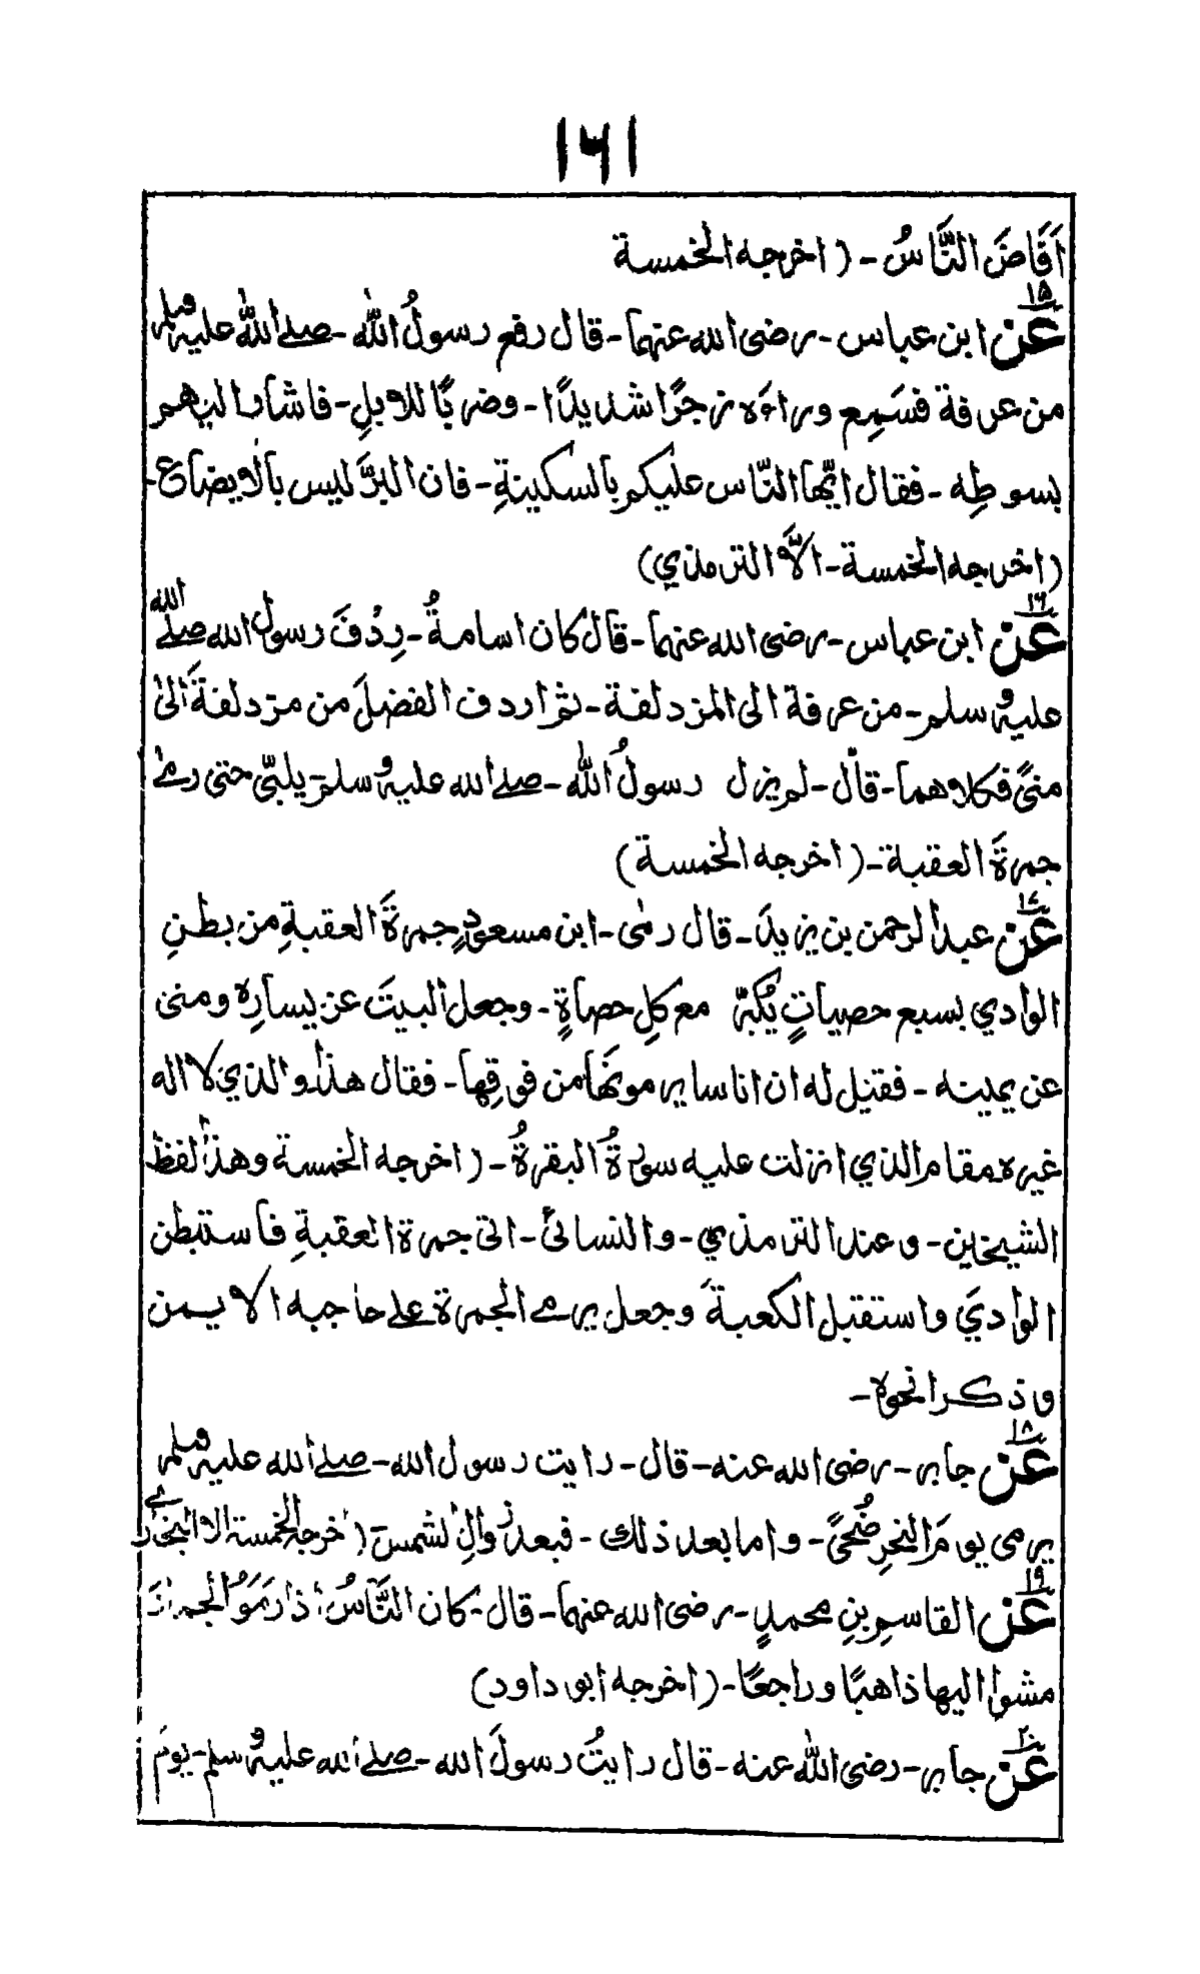 ۱۶۱
اَفَاضَ النَّاسُ - (اخرجه الخمسة
۱۵
عن ابن عباس - رضی الله عنہما - قال رفع رسولُ اللّٰه - صلے اللّٰه علیہ وسلم
من عرفة فسَمِع وراءَه زجرًا شديدًا - وضربًا للابلِ - فاشار اليهم
بسوطِه - فقال ايّها النّاس عليكم بالسكينةِ - فان البرَّ ليس بالايضاع -
(اخرجه الخمسة - الاَّ الترمذي)
۱۶
عن ابن عباس - رضی الله عنہما - قال كان اسامةُ - رِدْفَ رسول الله صلے الله
عليه وسلم - من عرفة الى المزدلفة - ثم اردف الفضلَ من مزدلفةَ الىٰ
منىً فكلاهما - قال - لم يزل رسولُ اللّٰه - صلے الله عليه وسلم - يلبّي حتى رمےٰ
جمرةَ العقبة - (اخرجه الخمسة)
۱۷
عن عبد الرحمن بن يزيدَ - قال رمىٰ - ابن مسعودٍ جمرةَ العقبةِ من بطنِ
الوادي بسبع حصياتٍ يُكبّر مع كلِ حصاةٍ - وجعل البيتَ عن يسارِه ومنى
عن يمينه - فقيل له ان اناسا يرمونَها من فوقِها - فقال هذا والذي لا اله
غيره مقام الذي انزلت عليه سورةُ البقرةُ - (اخرجه الخمسة وهذا لفظ
الشيخين - وعند الترمذي - والنسائی - اتى جمرة العقبةِ فاستبطن
الوادي واستقبل الكعبةَ وجعل يرمے الجمرة علے حاجبه الايمن
وذكر نحوه -
۱۸
عن جابر - رضی الله عنه - قال - رايت رسول الله - صلے الله علیہ وسلم
يرمى يومَ النحرِ ضُحىً - واما بعد ذلك - فبعد زوالِ الشمس (اخرجه الخمسة الا البخاري
۱۹
عن القاسمِ بنِ محمدٍ - رضی الله عنہما - قال - كان النَّاسُ اذا رَمَوُا الجمارَ
مشوا اليها ذاهبًا وراجعًا - (اخرجه ابو داود)
۲۰
عن جابر - رضی اللّٰه عنه - قال رايتُ رسولَ الله - صلے الله عليه وسلم - يومَ